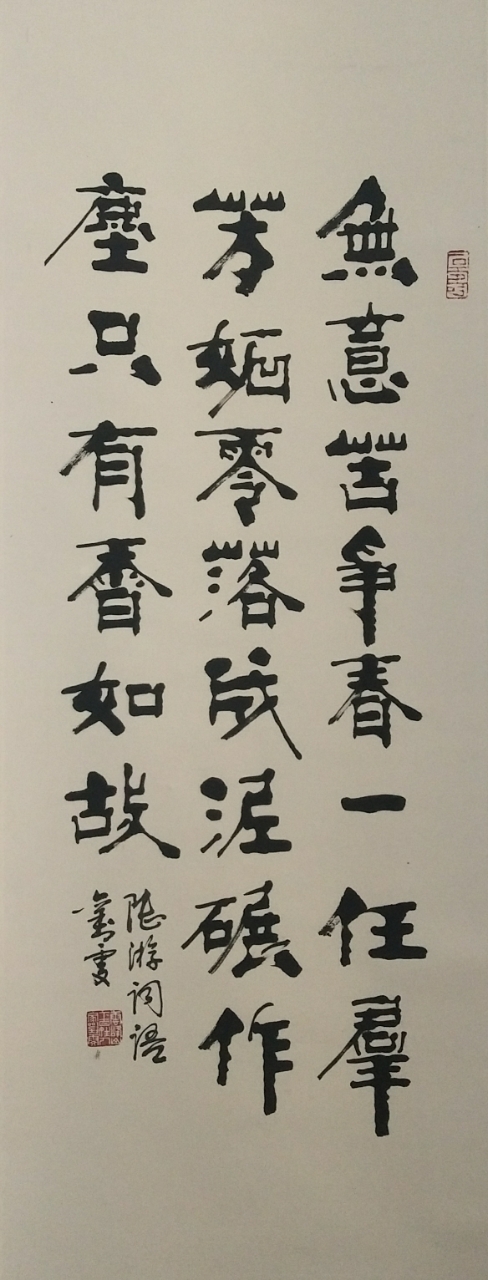 無意苦爭春一任羣
芳妬零落成泥碾作
塵只有香如故
陸游詞語